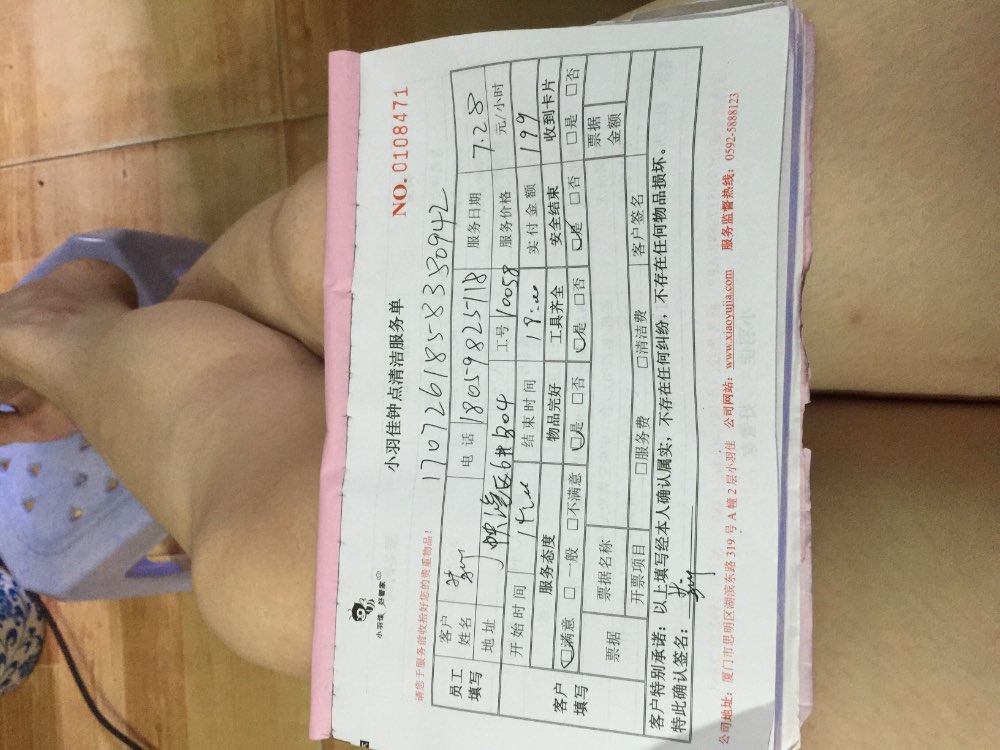 小羽佳 好管家
小羽佳钟点清洁服务单
NO.0108471
请您于服务前收拾好您的贵重物品!
170726185835094​2
员工填写 客户姓名 电话 18059825718 服务日期 7.28
地址 6#804 工号 10058 服务价格 元/小时
开始时间 结束时间 18:00 实付金额 199
客户填写 服务态度 物品完好 工具齐全 安全结束 收到卡片
□满意 □一般 □不满意 □是 □否 □是 □否 □是 □否 □是 □否
票据 票据名称 票据金额
开票项目 □服务费 □清洁费 客户签名
客户特别承诺：以上填写经本人确认属实，不存在任何纠纷，不存在任何物品损坏。
特此确认签名：
公司地址：厦门市思明区湖滨东路 319 号 A 幢 2 层小羽佳 公司网站：www.xiaoyujia.com 服务监督热线：0592-5888123